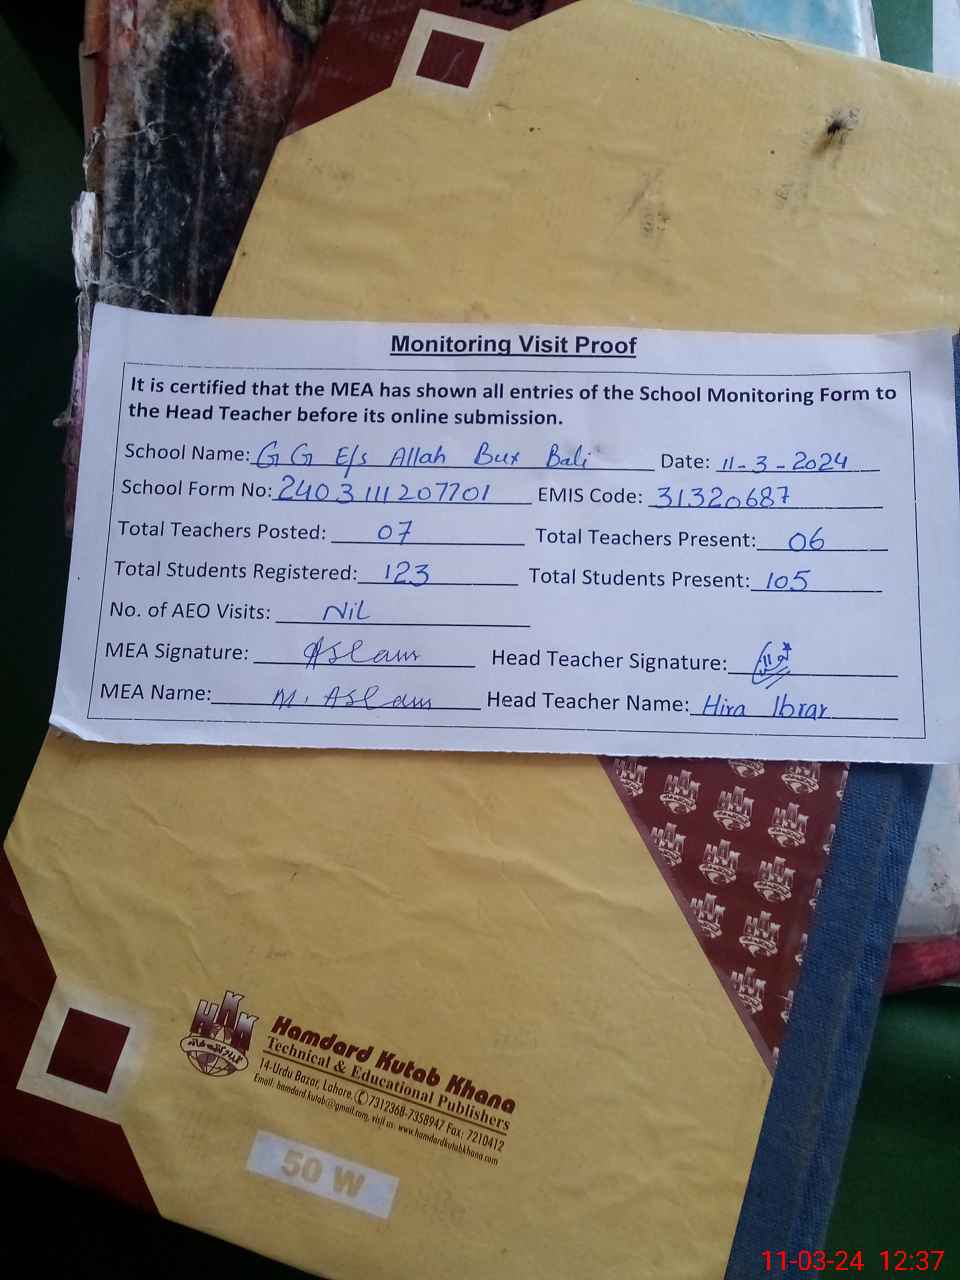 Monitoring Visit Proof
It is certified that the MEA has shown all entries of the School Monitoring Form to
the Head Teacher before its online submission.
School Name: G G E/s Allah Bux Bali Date: 11-3-2024
School Form No: 2403111207701 EMIS Code: 31320687
Total Teachers Posted: 07 Total Teachers Present: 06
Total Students Registered: 123 Total Students Present: 105
No. of AEO Visits: Nil
MEA Signature: Aslam Head Teacher Signature:
MEA Name: M. Aslam Head Teacher Name: Hira Ibrar
HKK
Hamdard Kutab Khana
Technical & Educational Publishers
14-Urdu Bazar, Lahore. 7312368-7358947 Fax: 7210412
Email: hamdard.kutab@gmail.com, visit us: www.hamdardkutabkhana.com
50 W
11-03-24 12:37